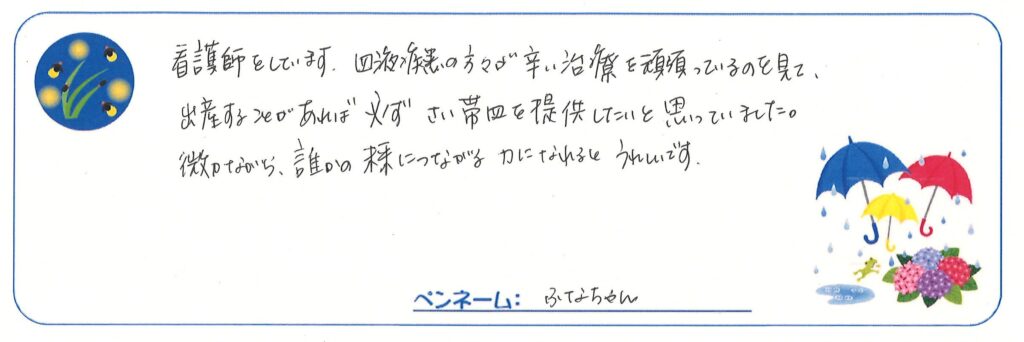 看護師をしています。血液疾患の方々が辛い治療を頑張っているのを見て、
出産することがあれば必ずさい帯血を提供したいと思っていました。
微力ながら、誰かの未来につながる力になれるとうれしいです。
ペンネーム: ふなちゃん